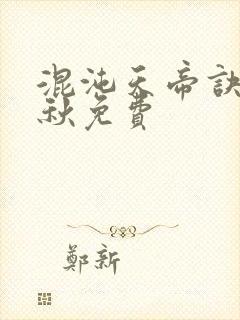 混沌天帝訣
秋免費
鄭新